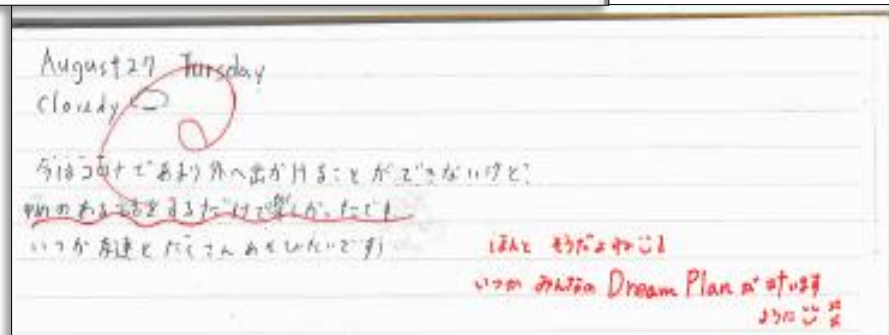 August 27 Tursday
Cloudy
今はコロナであまり外へ出かけることができないけど、
のあることをするだけで楽しかったです
いつか友達とたくさんあそびたいです
ほんと そうだよね
いつか みんなの Dream Plan が 叶います
ように